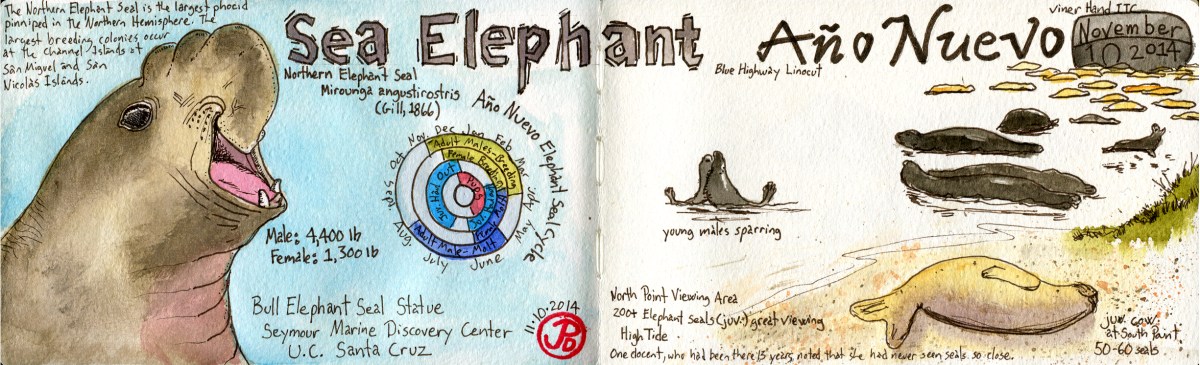 The Northern Elephant Seal is the largest phocid
pinniped in the Northern Hemisphere. The
largest breeding colonies occur
at the Channel Islands at
San Miguel and San
Nicolas Islands.
Sea Elephant
Northern Elephant Seal
Mirounga angustirostris
(Gill, 1866)
Año Nuevo Elephant Seal Cycle
Jan
Feb
Mar
Apr
May
June
July
Aug
Sep
Oct
Nov
Dec
Adult Males-Breeding
Female Breeding
Pups
Juv. Haul Out
Female Molt
Adult Male-Molt
Male: 4,400 lb
Female: 1,300 lb
Bull Elephant Seal Statue
Seymour Marine Discovery Center
U.C. Santa Cruz
11.10.2014
JPD
Año Nuevo
Viner Hand ITC
Blue Highway Linocut
November
10 2014
young males sparring
North Point Viewing Area
200+ Elephant seals (juv.) great viewing
High Tide
One docent, who had been there 15 years, noted that she had never seen seals so close.
juv. cow
at South Point
50-60 seals